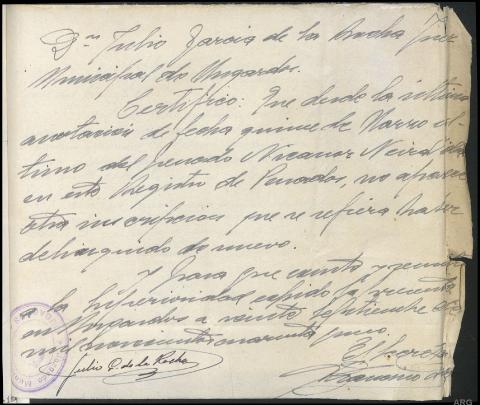 Dn Julio Garcia de la Rocha Juez
Municipal de Mugardos.
Certifico: Que desde la última
anotacion de fecha quince de Marzo ul-
timo del penado Nicanor Neira
en este Registro de Penados, no aparece
otra inscripcion que se refiera haber
delinquido de nuevo.
Y para que conste y
a la Superioridad expido la presente
en Mugardos a veinte Septiembre de
mil novecientos cuarenta y uno.
El Secreta
Julio G. de la Rocha
ARG